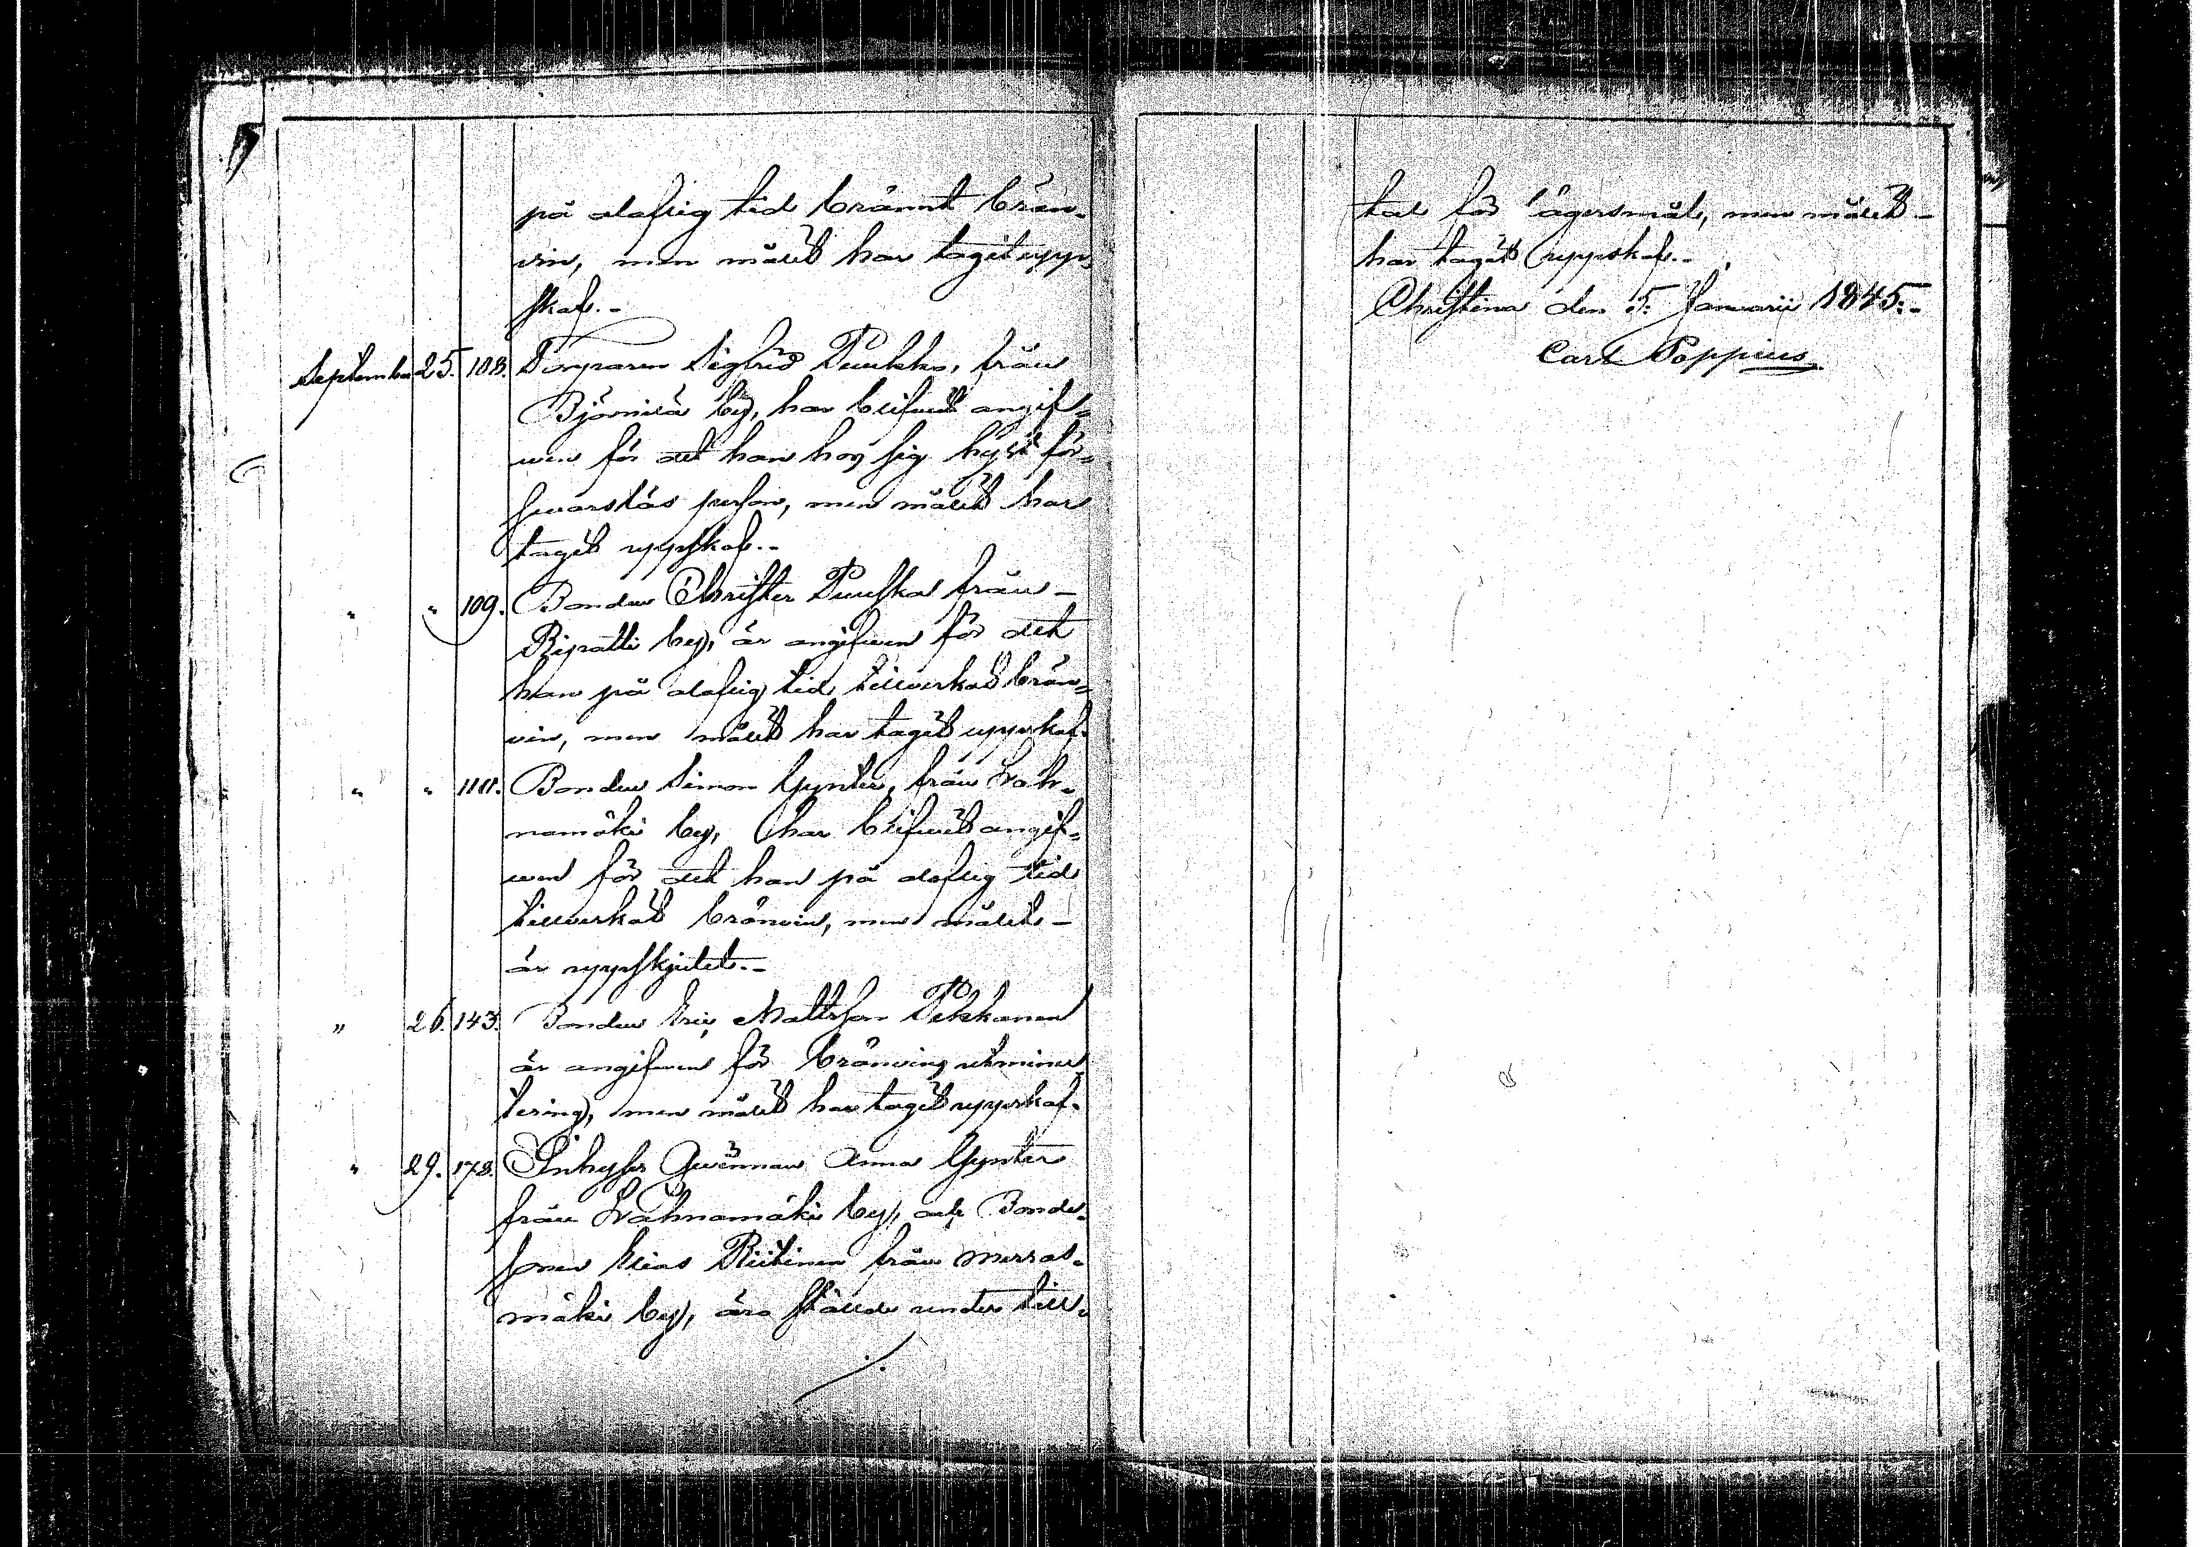 på olaflig tid brännt brän-
vin, men målet har tagit upp-
skof.-
September 25. 108. Torparen Sigfrid Puukko, från
Björnilä by, har blifvit angif-
ven för det han hos sig hyst för-
svarslös person, men målet har
tagit uppskof.-
" " 109. Bonden Christer Puuska från
Ripatti by, är angifven för det
han på olaflig tid tillverkat brän-
vin, men målet har tagit uppskof.
" " 110. Bonden Simon Gynter, från Lah-
namäki by, har blifvit angif-
ven för det han på olaflig tid
tillverkat bränvin, men målet
är uppskjutet.-
" 26. 143. Bonden Eric Mattsson Pekkanen
är angifven för bränvins utminu-
tering, men målet har tagit uppskof.
" 29. 178. Inhyses Qvinnan Anna Gynter
från Lahnamäki by, och Bonde-
sonen Elias Riitinen från
mäki by, äro stälde under till-
./.
tal för lägersmål, men målet
har tagit uppskof.-
Christina den 5. Januarii 1845.-
Carl Poppius